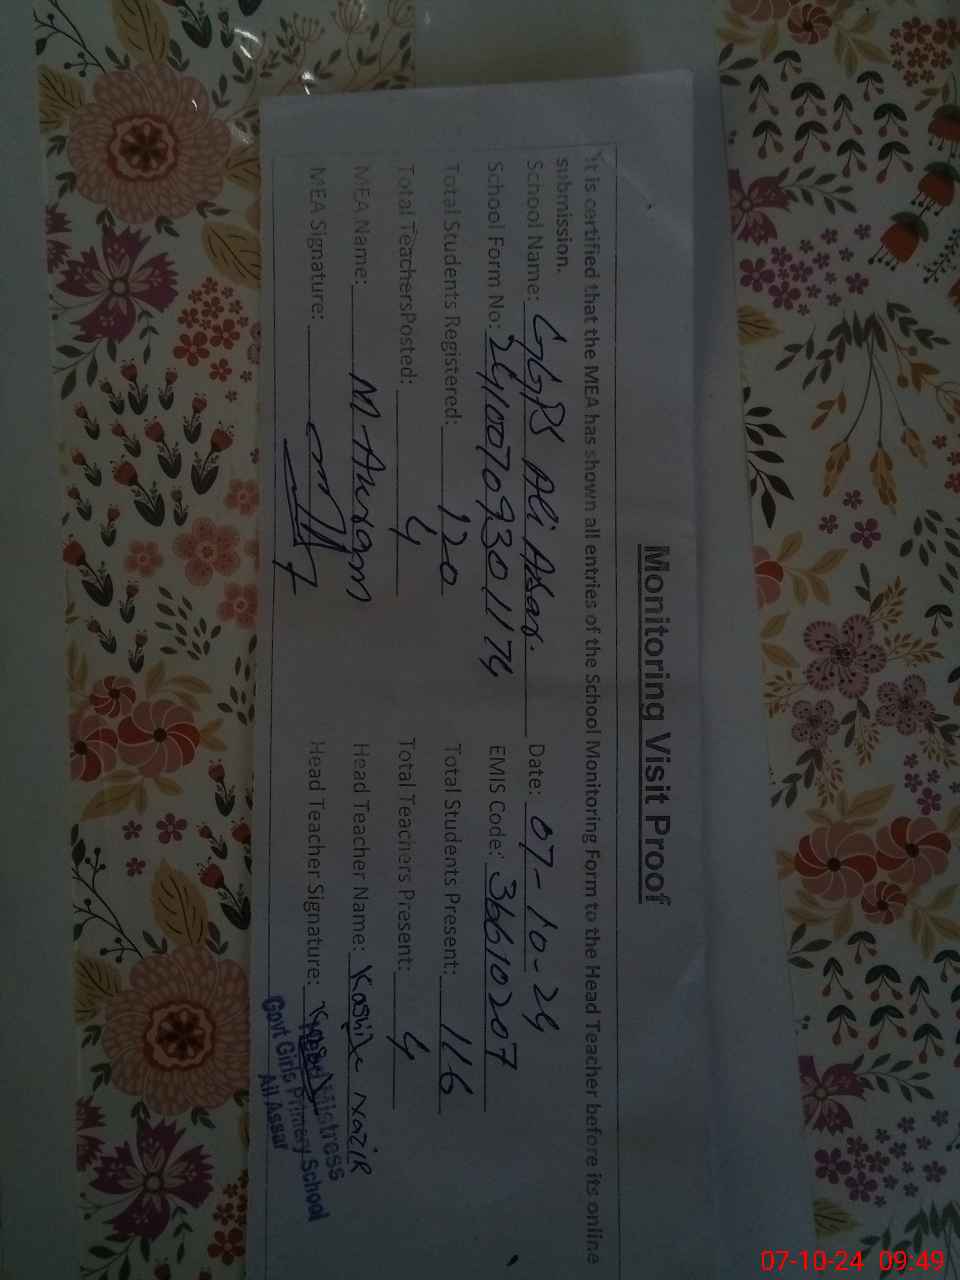 Monitoring Visit Proof
It is certified that the MEA has shown all entries of the School Monitoring Form to the Head Teacher before its online
submission.
School Name: GGPS Ali Asar. Date: 07-10-24
School Form No: 24100709301174 EMIS Code: 36610207
Total Students Registered: 120 Total Students Present: 116
Total TeachersPosted: 4 Total Teachers Present: 4
MEA Name: M. Akram Head Teacher Name: Nazir
MEA Signature: Head Teacher Signature:
Head Mistress
Govt Girls Primery School
Ali Assar
07-10-24 09:49